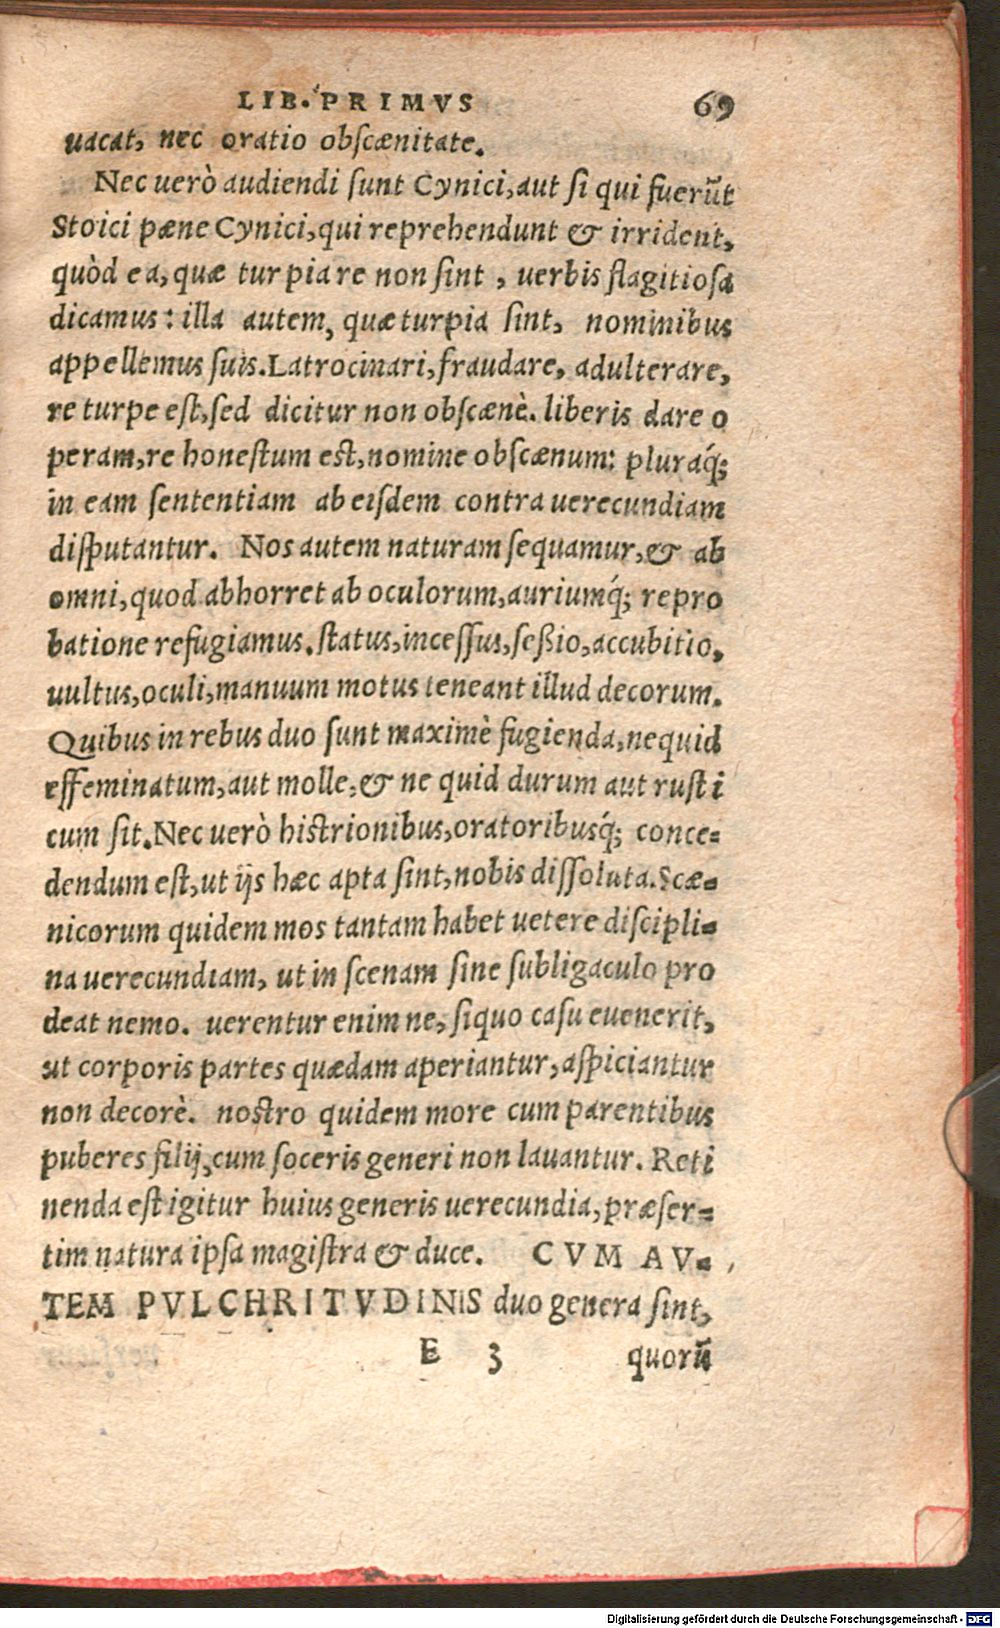 LIB. PRIMVS 69
uacat, nec oratio obſcænitate.
Nec uerò audiendi ſunt Cynici, aut ſi qui fuerũt
Stoici pæne Cynici, qui reprehendunt & irrident,
quòd ea, quæ turpia re non ſint, uerbis flagitioſa
dicamus: illa autem, quæ turpia ſint, nominibus
appellemus ſuis. Latrocinari, fraudare, adulterare,
re turpe eſt, ſed dicitur non obſcænè. liberis dare o
peram, re honeſtum eſt, nomine obſcænum: pluraq́;
in eam ſententiam ab eiſdem contra uerecundiam
diſputantur. Nos autem naturam ſequamur, & ab
omni, quod abhorret ab oculorum, auriumq́; repro
batione refugiamus. ſtatus, inceſſus, ſeßio, accubitio,
uultus, oculi, manuum motus teneant illud decorum.
Quibus in rebus duo ſunt maximè fugienda, ne quid
effeminatum, aut molle, & ne quid durum aut ruſti
cum ſit. Nec uerò hiſtrionibus, oratoribusq́; conce-
dendum eſt, ut ijs hæc apta ſint, nobis diſſoluta. Scæ-
nicorum quidem mos tantam habet uetere diſcipli-
na uerecundiam, ut in ſcenam ſine ſubligaculo pro
deat nemo. uerentur enim ne, ſiquo caſu euenerit,
ut corporis partes quædam aperiantur, aſpiciantur
non decorè. noſtro quidem more cum parentibus
puberes filij, cum ſoceris generi non lauantur. Reti
nenda eſt igitur huius generis uerecundia, præſer-
tim natura ipſa magiſtra & duce. CVM AV-
TEM PVLCHRITVDINIS duo genera ſint,
E 3 quorũ
Digitalisierung gefördert durch die Deutsche Forschungsgemeinschaft - DFG